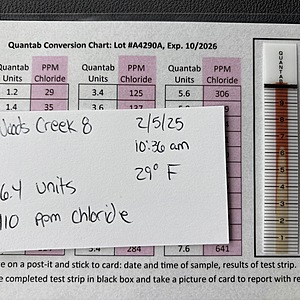 Quantab Conversion Chart: Lot #A4290A, Exp. 10/2026
Quantab Units PPM Chloride Quantab Units PPM Chloride Quantab Units PPM Chloride
1.2 29 3.4 125 5.6 306
1.4 35 3.6 137
Creek 8 2/5/25
10:36 am
29° F
6.4 units
ppm chloride
5.4 284 7.6 641
e on a post-it and stick to card: date and time of sample, results of test strip.
e completed test strip in black box and take a picture of card to report with re
QUANTAB